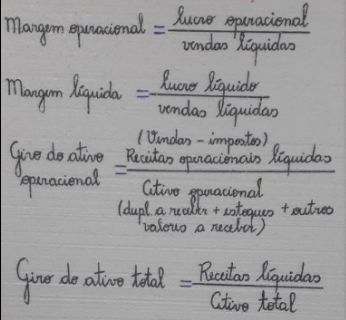 Margem operacional = lucro operacional
vendas líquidas
Margem líquida = lucro líquido
vendas líquidas
(Vendas - impostos)
Giro do ativo operacional = Receitas operacionais líquidas
Ativo operacional
(dupl. a receber + estoques + outros
valores a receber)
Giro do ativo total = Receitas líquidas
Ativo total